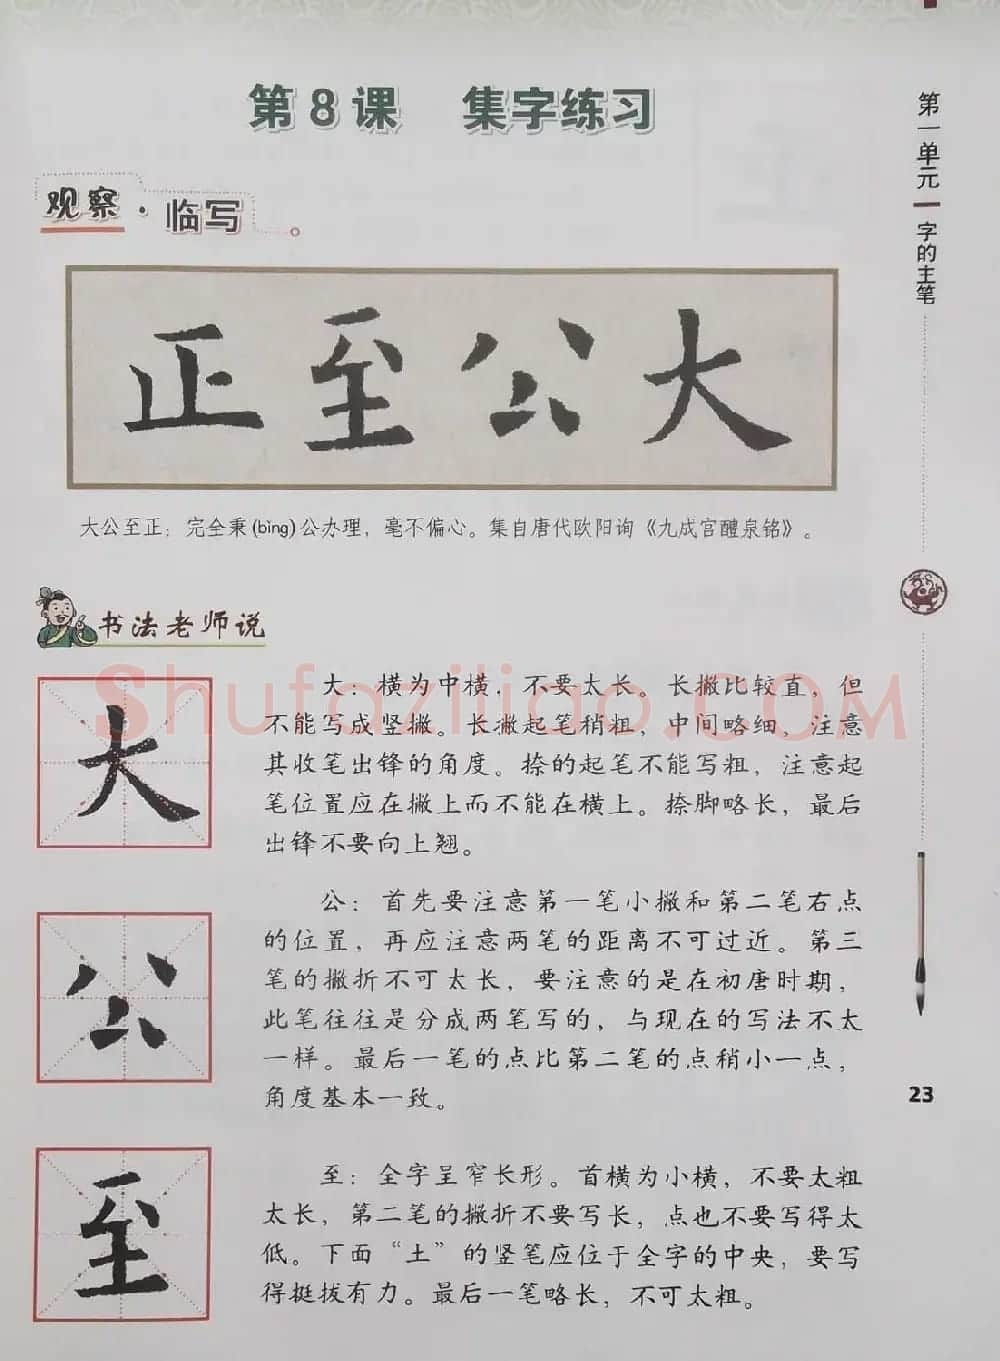 第8课 集字练习
观察·临写
正至公大
大公至正：完全秉(bǐng)公办理，毫不偏心。集自唐代欧阳询《九成宫醴泉铭》。
书法老师说
大
大：横为中横，不要太长。长撇比较直，但
不能写成竖撇。长撇起笔稍粗，中间略细，注意
其收笔出锋的角度。捺的起笔不能写粗，注意起
笔位置应在撇上而不能在横上。捺脚略长，最后
出锋不要向上翘。
公
公：首先要注意第一笔小撇和第二笔右点
的位置，再应注意两笔的距离不可过近。第三
笔的撇折不可太长，要注意的是在初唐时期，
此笔往往是分成两笔写的，与现在的写法不太
一样。最后一笔的点比第二笔的点稍小一点，
角度基本一致。
至
至：全字呈窄长形。首横为小横，不要太粗
太长，第二笔的撇折不要写长，点也不要写得太
低。下面“土”的竖笔应位于全字的中央，要写
得挺拔有力。最后一笔略长，不可太粗。
第一单元 字的主笔
23
Shufaziliao.COM